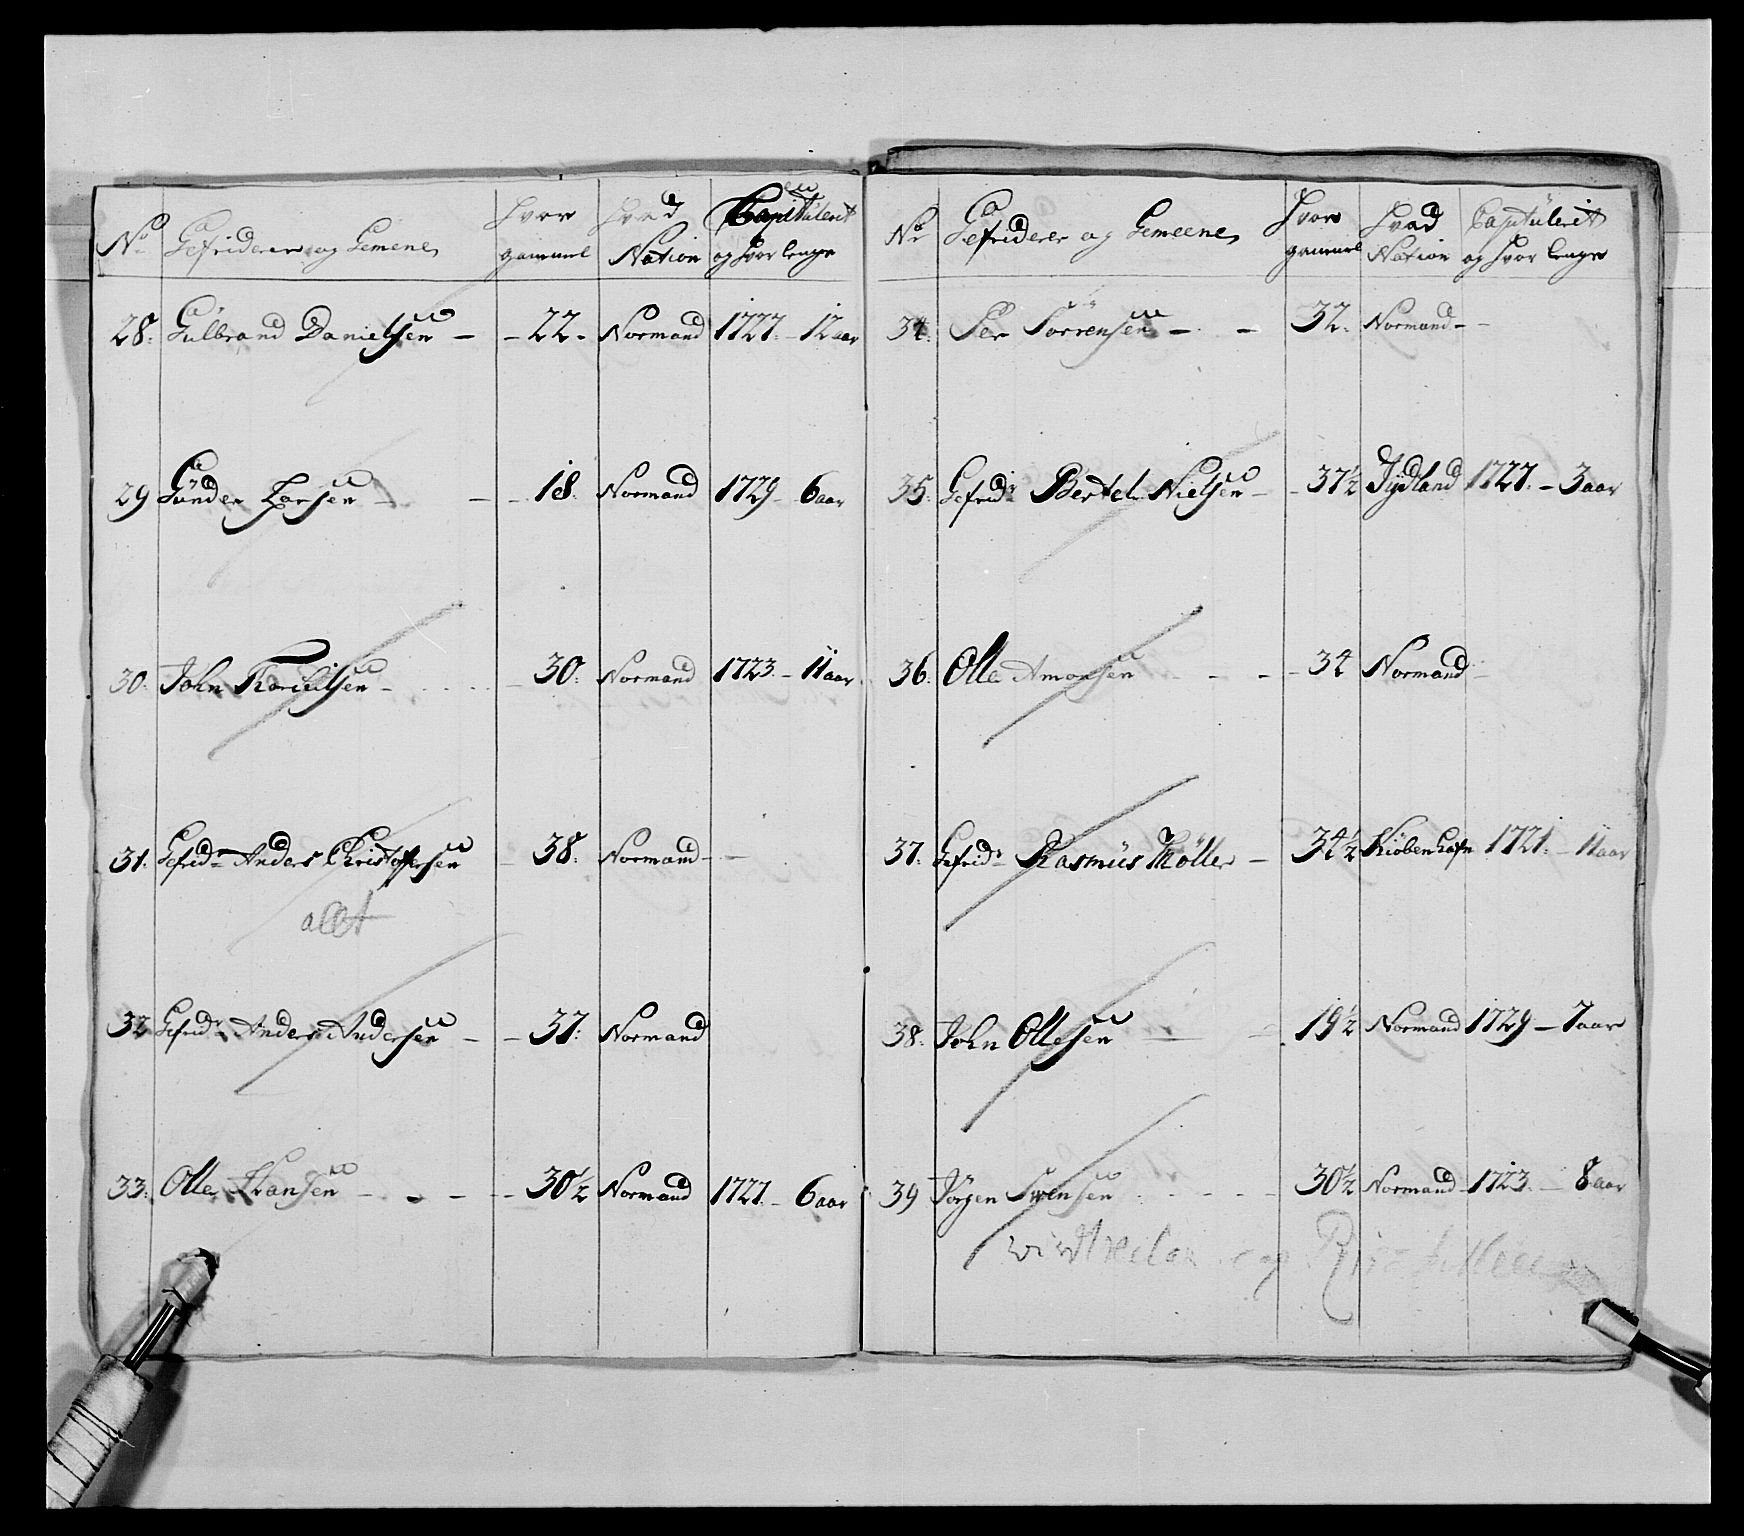 No Gefriderer og Gemene, Hvor gammel Hvad Nation Capitulerit og hvor lenge
28: Gülbrand Danielsen - - 22 - Normand 1727 - 12 aar
29 Günder Larsen - - - 18: Normand 1729 - 6 aar
30: John - 30: Normand 1723 - 11 aar
31: Gefrid: Anders Christoffersen - 38: Normand - -
32 Gefrid: Anders Andersen - - 37: Normand
33: Olle Hansen - - - - 30½ Normand 1727 - 6 aar
No Gefriderer og Gemeene, Hvor gammel Hvad Nation Captülerit og hvor lenge
34: Per Sörrensen - - 32: Normand - -
35: Gefrid: Bertel Nielsen - - 37½ Jydland 1727 - 3 aar
36: Olle Amonsen - - - - 34 Normand -
37: Gefrid: Rasmüs Möller - 34½ Kiöbenhafn 1721 - 11 aar
38: John Ollesen - - 19½ Normand 1729 - 7 aar
39 Jörgen Svensen - - - 30½ Normand 1723 - 8 aar